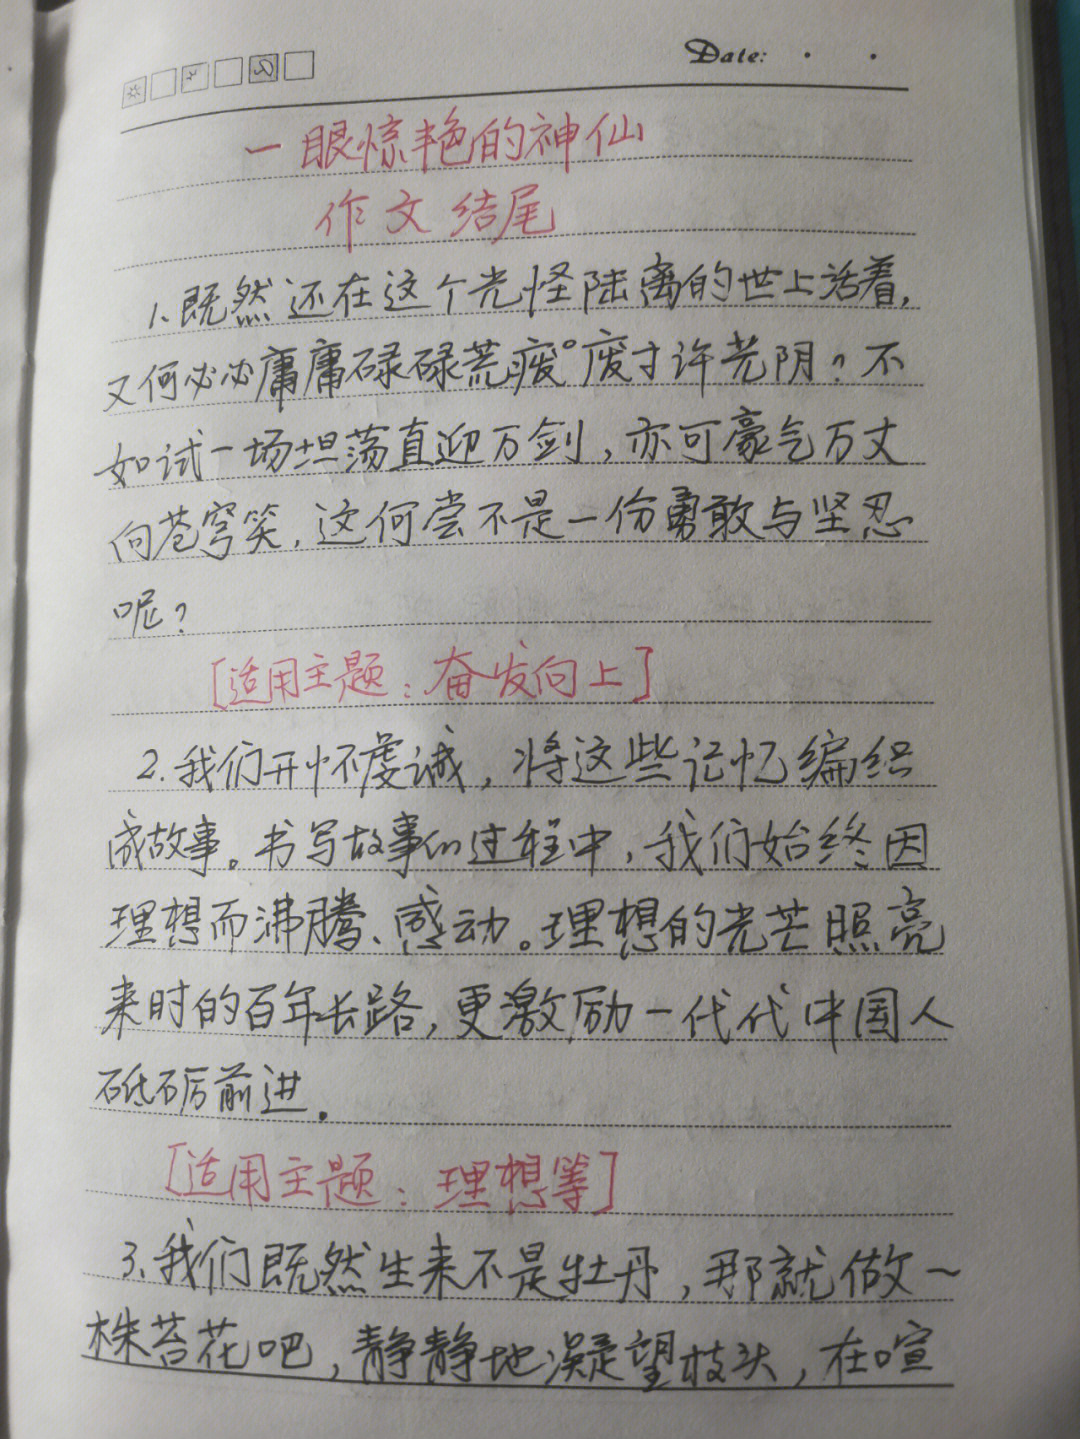 Date:
一眼惊艳的神仙
作文结尾
1.既然还在这个光怪陆离的世上活着,
又何必必庸庸碌碌荒废。废寸许光阴?不
如试一场坦荡直迎万剑,亦可豪气万丈
向苍穹笑,这何尝不是一份勇敢与坚忍
呢?
[适用主题:奋发向上]
2.我们开怀虔诚,将这些记忆编织
成故事。书写故事的过程中,我们始终因
理想而沸腾、感动。理想的光芒照亮
来时的百年长路,更激励一代代中国人
砥砺前进.
[适用主题:理想等]
3.我们既然生来不是牡丹,那就做一
株苔花吧,静静地凝望枝头,在喧